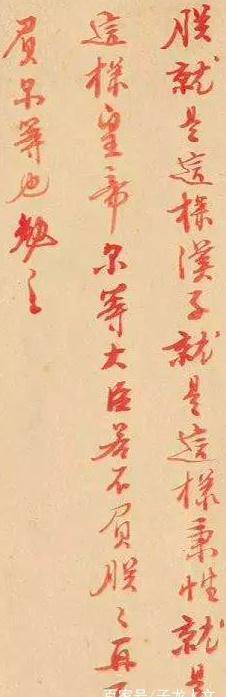 朕就是這樣漢子就是這樣秉性就是
這樣皇帝尔等大臣若不負朕〻再不
負尔等也勉之
百家号/子龙人文